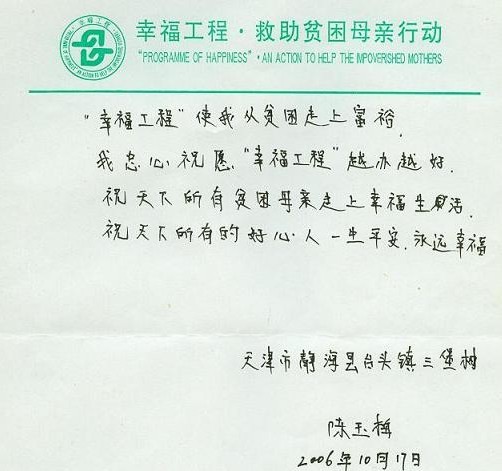 幸福工程·救助贫困母亲行动
"PROGRAMME OF HAPPINESS"·AN ACTION TO HELP THE IMPOVERISHED MOTHERS
"幸福工程"使我从贫困走上富裕.
我忠心祝愿"幸福工程"越办越好.
祝天下所有贫困母亲走上幸福生活.
祝天下所有的好心人一生平安.永远幸福
天津市静海县台头镇三堡村
陈玉梅
2006年10月17日